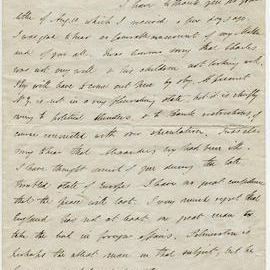 I have to thank you for your
letter of Aug. 10 which I received a few days ago.
I was glad to hear so favourable an account of my Mother
and of you all. I was however sorry that Charles
was not very well & his children not looking well.
They will have to come out here by & by. At present
N.Z. is not in a very flourishing state, but it is chiefly
owing to political blunders, & to Bank restrictions, of
course connected with over speculation. I was also
sorry to hear that Alexander's boy had been ill.
I have thought much of you during the late
troubled state of Europe. I have no great confidence
that the peace will last. I very much regret that
England has not at least one great man to
take the lead in foreign affairs. Palmerston is
perhaps the ablest man in that subject, but he